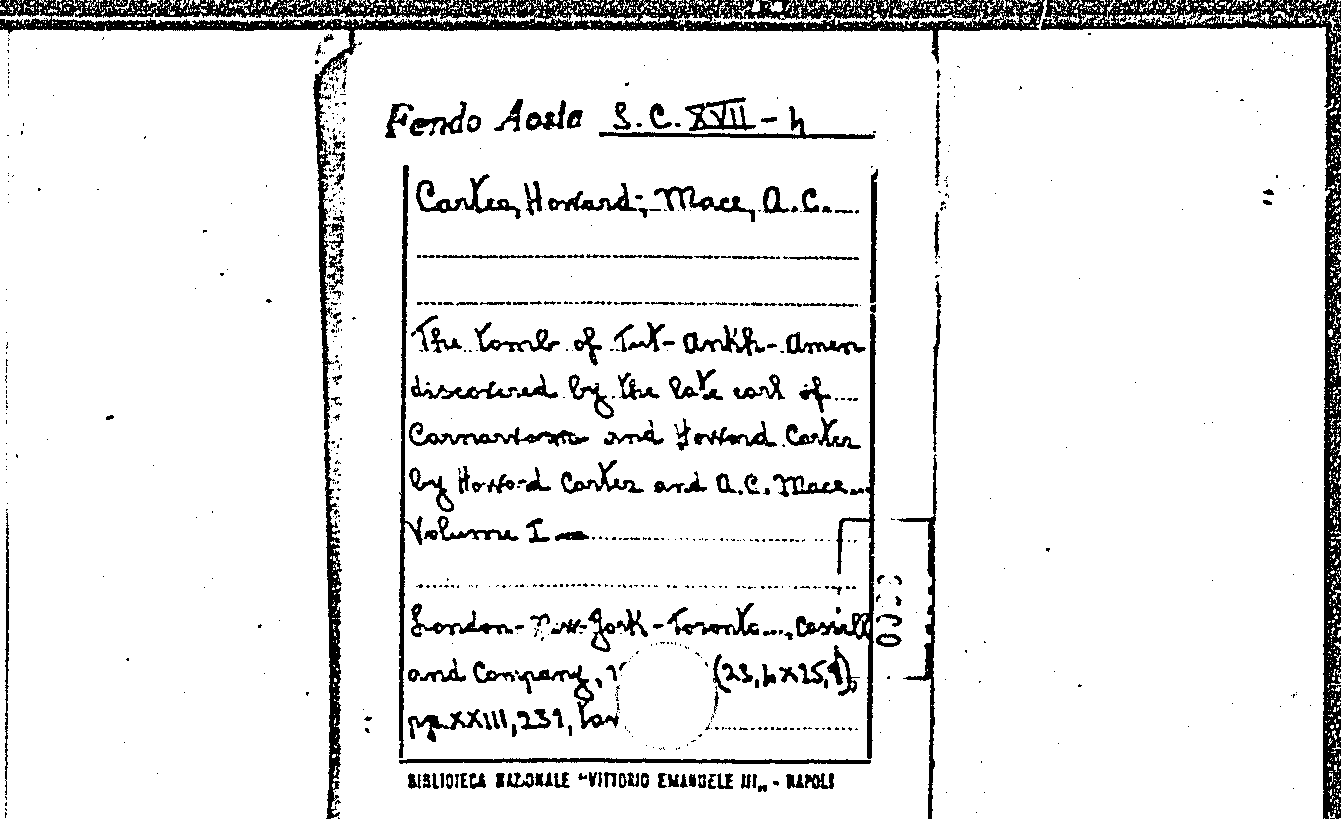 Fondo Aosta S.C. XVII - h
Carter, Howard; Mace, A.C.
The tomb of Tut-ankh-amen
discovered by the late earl of
Carnarvon and Howard Carter
by Howard Carter and A.C. Mace
Volume I
London - New-York - Toronto, Cassell
and Company,
pp. XXIII, 231, tav
BIBLIOTECA NAZIONALE "VITTORIO EMANUELE III" - NAPOLI